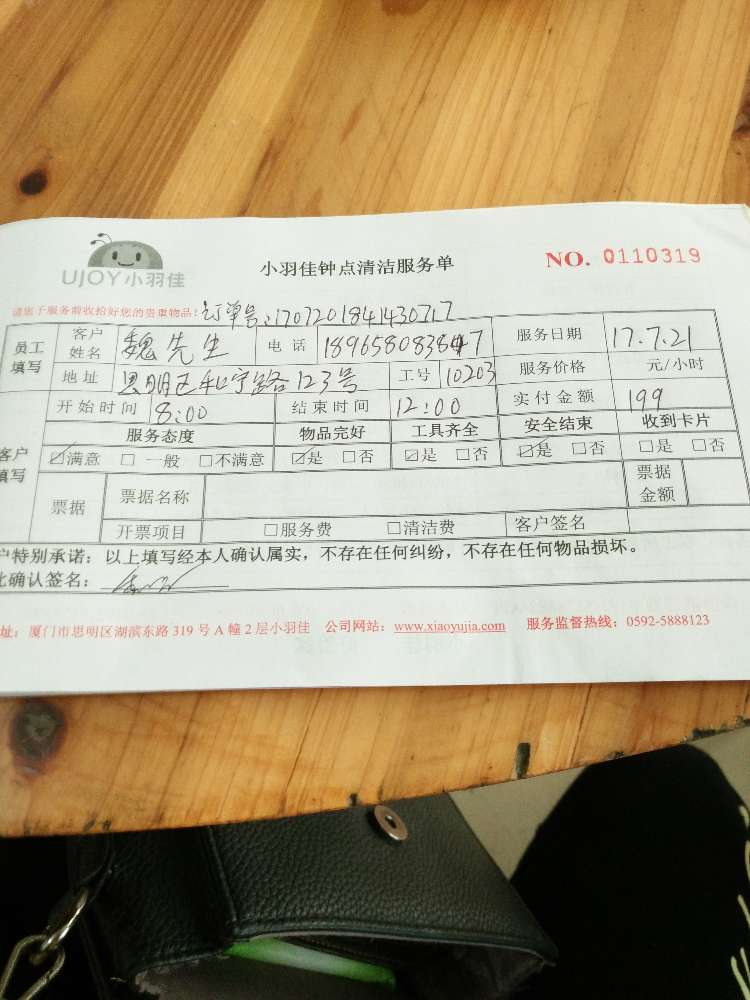 UJOY小羽佳
小羽佳钟点清洁服务单
NO. 0110319
请您于服务前收拾好您的贵重物品! 订单号:1707201841430717
员工填写 客户姓名 魏先生 电话 服务日期 17.7.21
地址 思明区和宁路123号 工号 10203 服务价格 元/小时
开始时间 8:00 结束时间 12:00 实付金额 199
客户填写 服务态度 物品完好 工具齐全 安全结束 收到卡片
☑满意 □一般 □不满意 ☑是 □否 ☑是 □否 ☑是 □否 □是 □否
票据 票据名称 票据金额
开票项目 □服务费 □清洁费 客户签名
户特别承诺：以上填写经本人确认属实，不存在任何纠纷，不存在任何物品损坏。
此确认签名：
址：厦门市思明区湖滨东路319号A幢2层小羽佳 公司网站：www.xiaoyujia.com 服务监督热线：0592-5888123